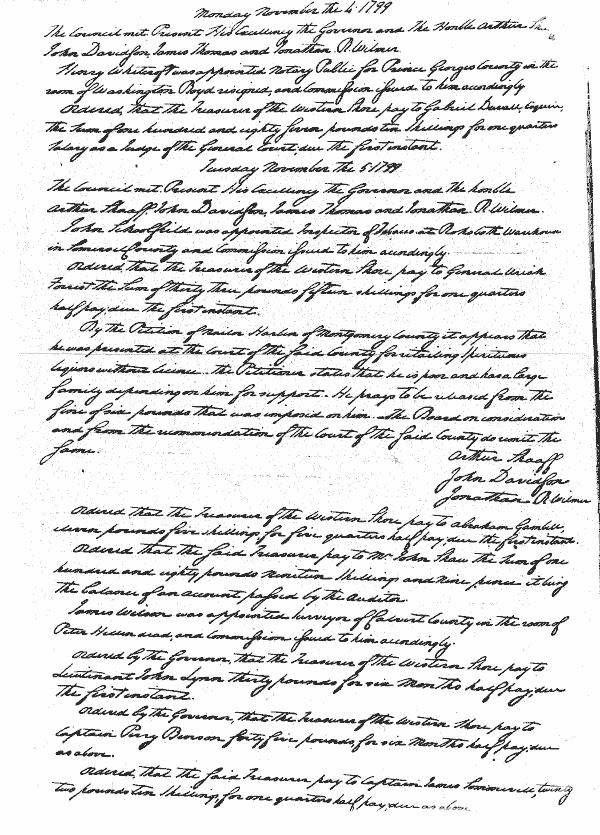 Monday November the 4. 1799
The Council met. Present His Excellency the Governor and The Honble Arthur
John Davidson, James Thomas and Jonathan R. Wilmer.
Henry Whitcroft was appointed Notary Public for Prince Georges County in the
room of Washington Boyd resigned, and Commission issued to him accordingly
Ordered, that the Treasurer of the Western Shore pay to Gabriel Duvall, Esquire,
the Sum of one hundred and eighty seven pounds ten Shillings for one quarters
Salary as a Judge of the General Court, due the first instant.
Tuesday November the 5. 1799
The Council met. Present His Excellency the Governor and the honble
Arthur Shaaff, John Davidson, James Thomas and Jonathan R. Wilmer.
John Schoolfield was appointed Inspector of Tobacco at Warehouse
in Somerset County and Commission issued to him accordingly.
Ordered, that the Treasurer of the Western Shore pay to General Uriah
Forrest the Sum of thirty three pounds fifteen shillings for one quarters
half pay, due the first instant.
By the Petition of Nailor Harbin of Montgomery County it appears that
he was presented at the Court of the said County for retailing Spiritous
liquors without licence. the Petitioner states that he is poor and has a large
family depending on him for support. He prays to be released from the
fine of six pounds that was imposed on him. The Board on consideration
and from the recommendation of the Court of the said County do remit the
same.
Arthur Shaaff
John Davidson
Jonathan R. Wilmer
Ordered that the Treasurer of the Western Shore pay to Abraham Gamble,
eleven pounds five shillings for five quarters half pay, due the first instant.
Ordered that the said Treasurer pay to Mr. John Shaw the Sum of one
hundred and eighty pounds nineteen Shillings and Nine pence it being
the balance of an Account, passed by the Auditor.
James Wilson was appointed Surveyor of Calvert County in the room of
Peter Hellen dead, and Commission issued to him accordingly.
Ordered by the Governor, that the Treasurer of the Western Shore pay to
Lieutenant John Lynn thirty pounds for six Months half pay, due
the first instant.
Ordered by the Governor, that the Treasurer of the Western Shore pay to
Captain Perry Benson forty five pounds, for six Months half pay, due
as above.
Ordered, that the said Treasurer pay to Captain James Sommervill, twenty
two pounds ten Shillings, for one quarters half pay, due as above